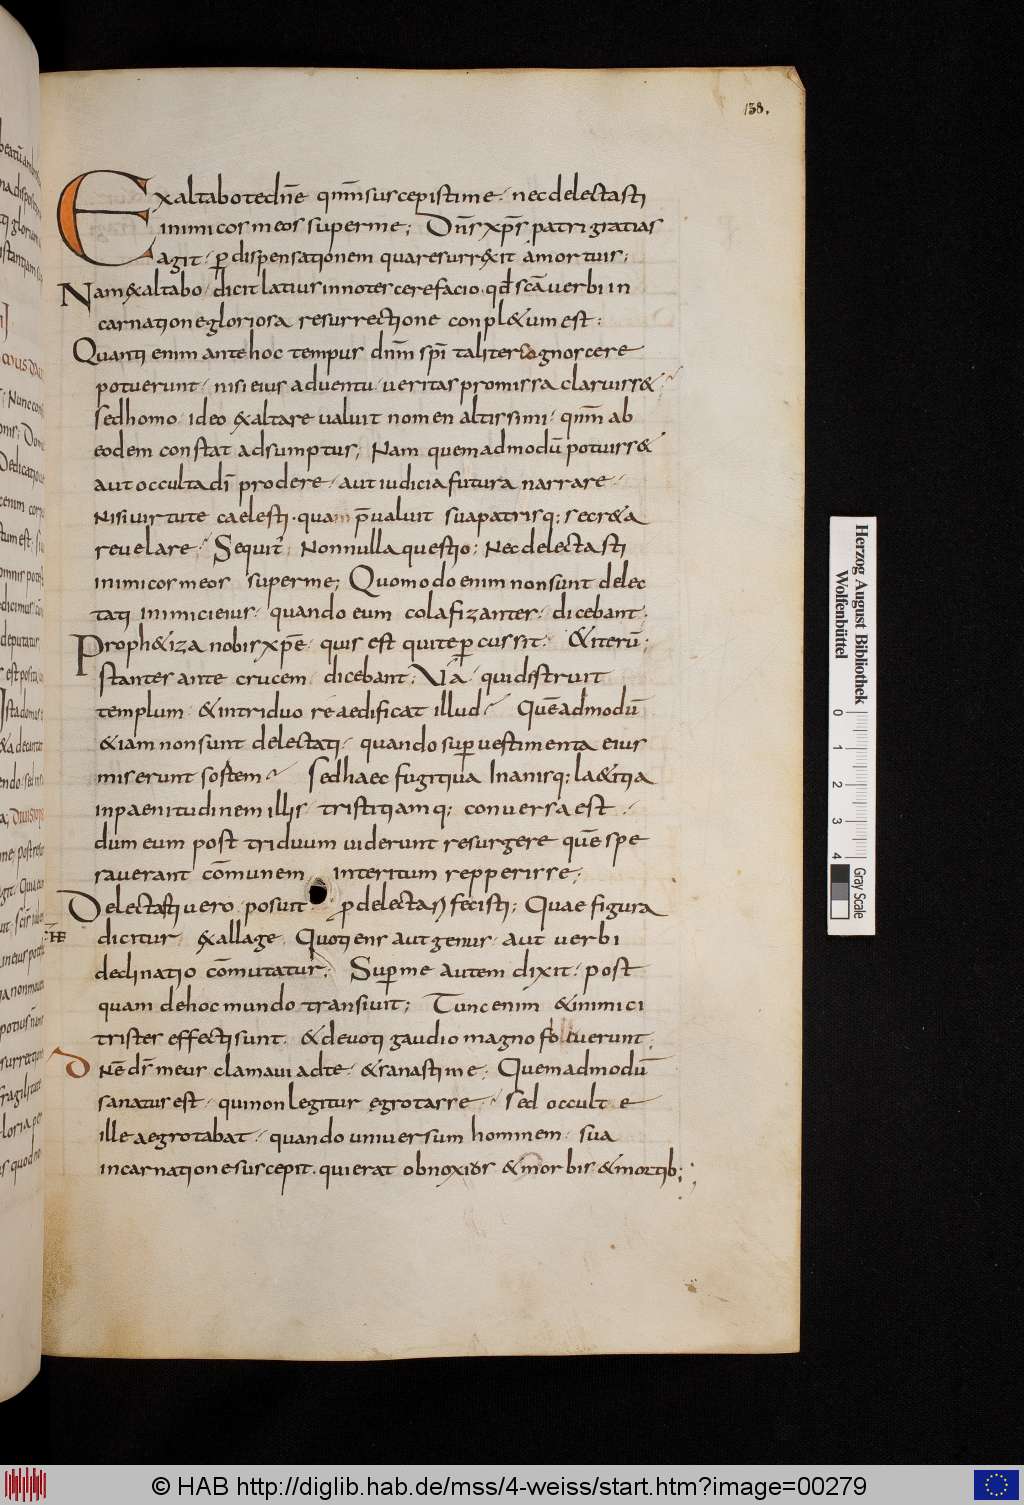 138.
Exaltabo te dn̄e qn̄m suscepisti me · nec delectasti
inimicos meos super me; Dn̄s xp̄s patri gratias
agit · ꝑ dispensationem qua resurrexit a mortuis;
Nam exaltabo · dicit latius innotescere facio · qd̄ scā verbi in
carnatione gloriosa resurrectione conpl&um est:
Quanti enim ante hoc tempus dnm̄ sp̄i taliter cognoscere
potuerunt · nisi eius adventu · veritas promissa claruiss&
sed homo · ideo exaltare valuit nomen altissimi · qn̄m ab
eodem constat adsumptus; Nam quemadmodū potuiss&
aut occulta dī prodere · aut iudicia futura narrare ·
Nisi virtute caelesti · quam p̄valuit sua patrisq; secr&a
revelare · Sequit᷑ Non nulla questio; Nec delectasti
inimicos meos super me; Quomodo enim non sunt delec
tati inimici eius · quando eum colafizantes · dicebant ·
Proph&iza nobis xp̄e · quis est qui te ꝑcussit · & iterū;
stantes ante crucem dicebant; Va · qui destruit
templum & in triduo reaedificat illud · Quēadmodū
& iam non sunt delectati · quando suꝑ vestimenta eius
miserunt sortem · Sed haec fugitiva Inanisq; la&itia
in paenitudinem illis tristitiamq; conversa est ·
dum eum post triduum viderunt resurgere quē spe
raverant cōmunem interitum repperisse;
Delectasti vero · posuit · ꝑ delectari fecisti; Quae figura
dicitur exallage Quotiens aut genus · aut verbi
declinatio cōmutatur; Suꝑ me autem dixit · post
quam de hoc mundo transivit; Tunc enim & inimici
tristes effecti sunt & devoti gaudio magno
Dn̄e ds̄ meus clamavi ad te · & sanasti me; Quemadmodū
sanatus est · qui non legitur egrotasse · sed occulte
ille aegrotabat · quando universum hominem sua
incarnatione suscepit · qui erat obnoxius & morbis & mortib;
Herzog August Bibliothek
Wolfenbüttel
0 1 2 3 4
Gray Scale
© HAB http://diglib.hab.de/mss/4-weiss/start.htm?image=00279